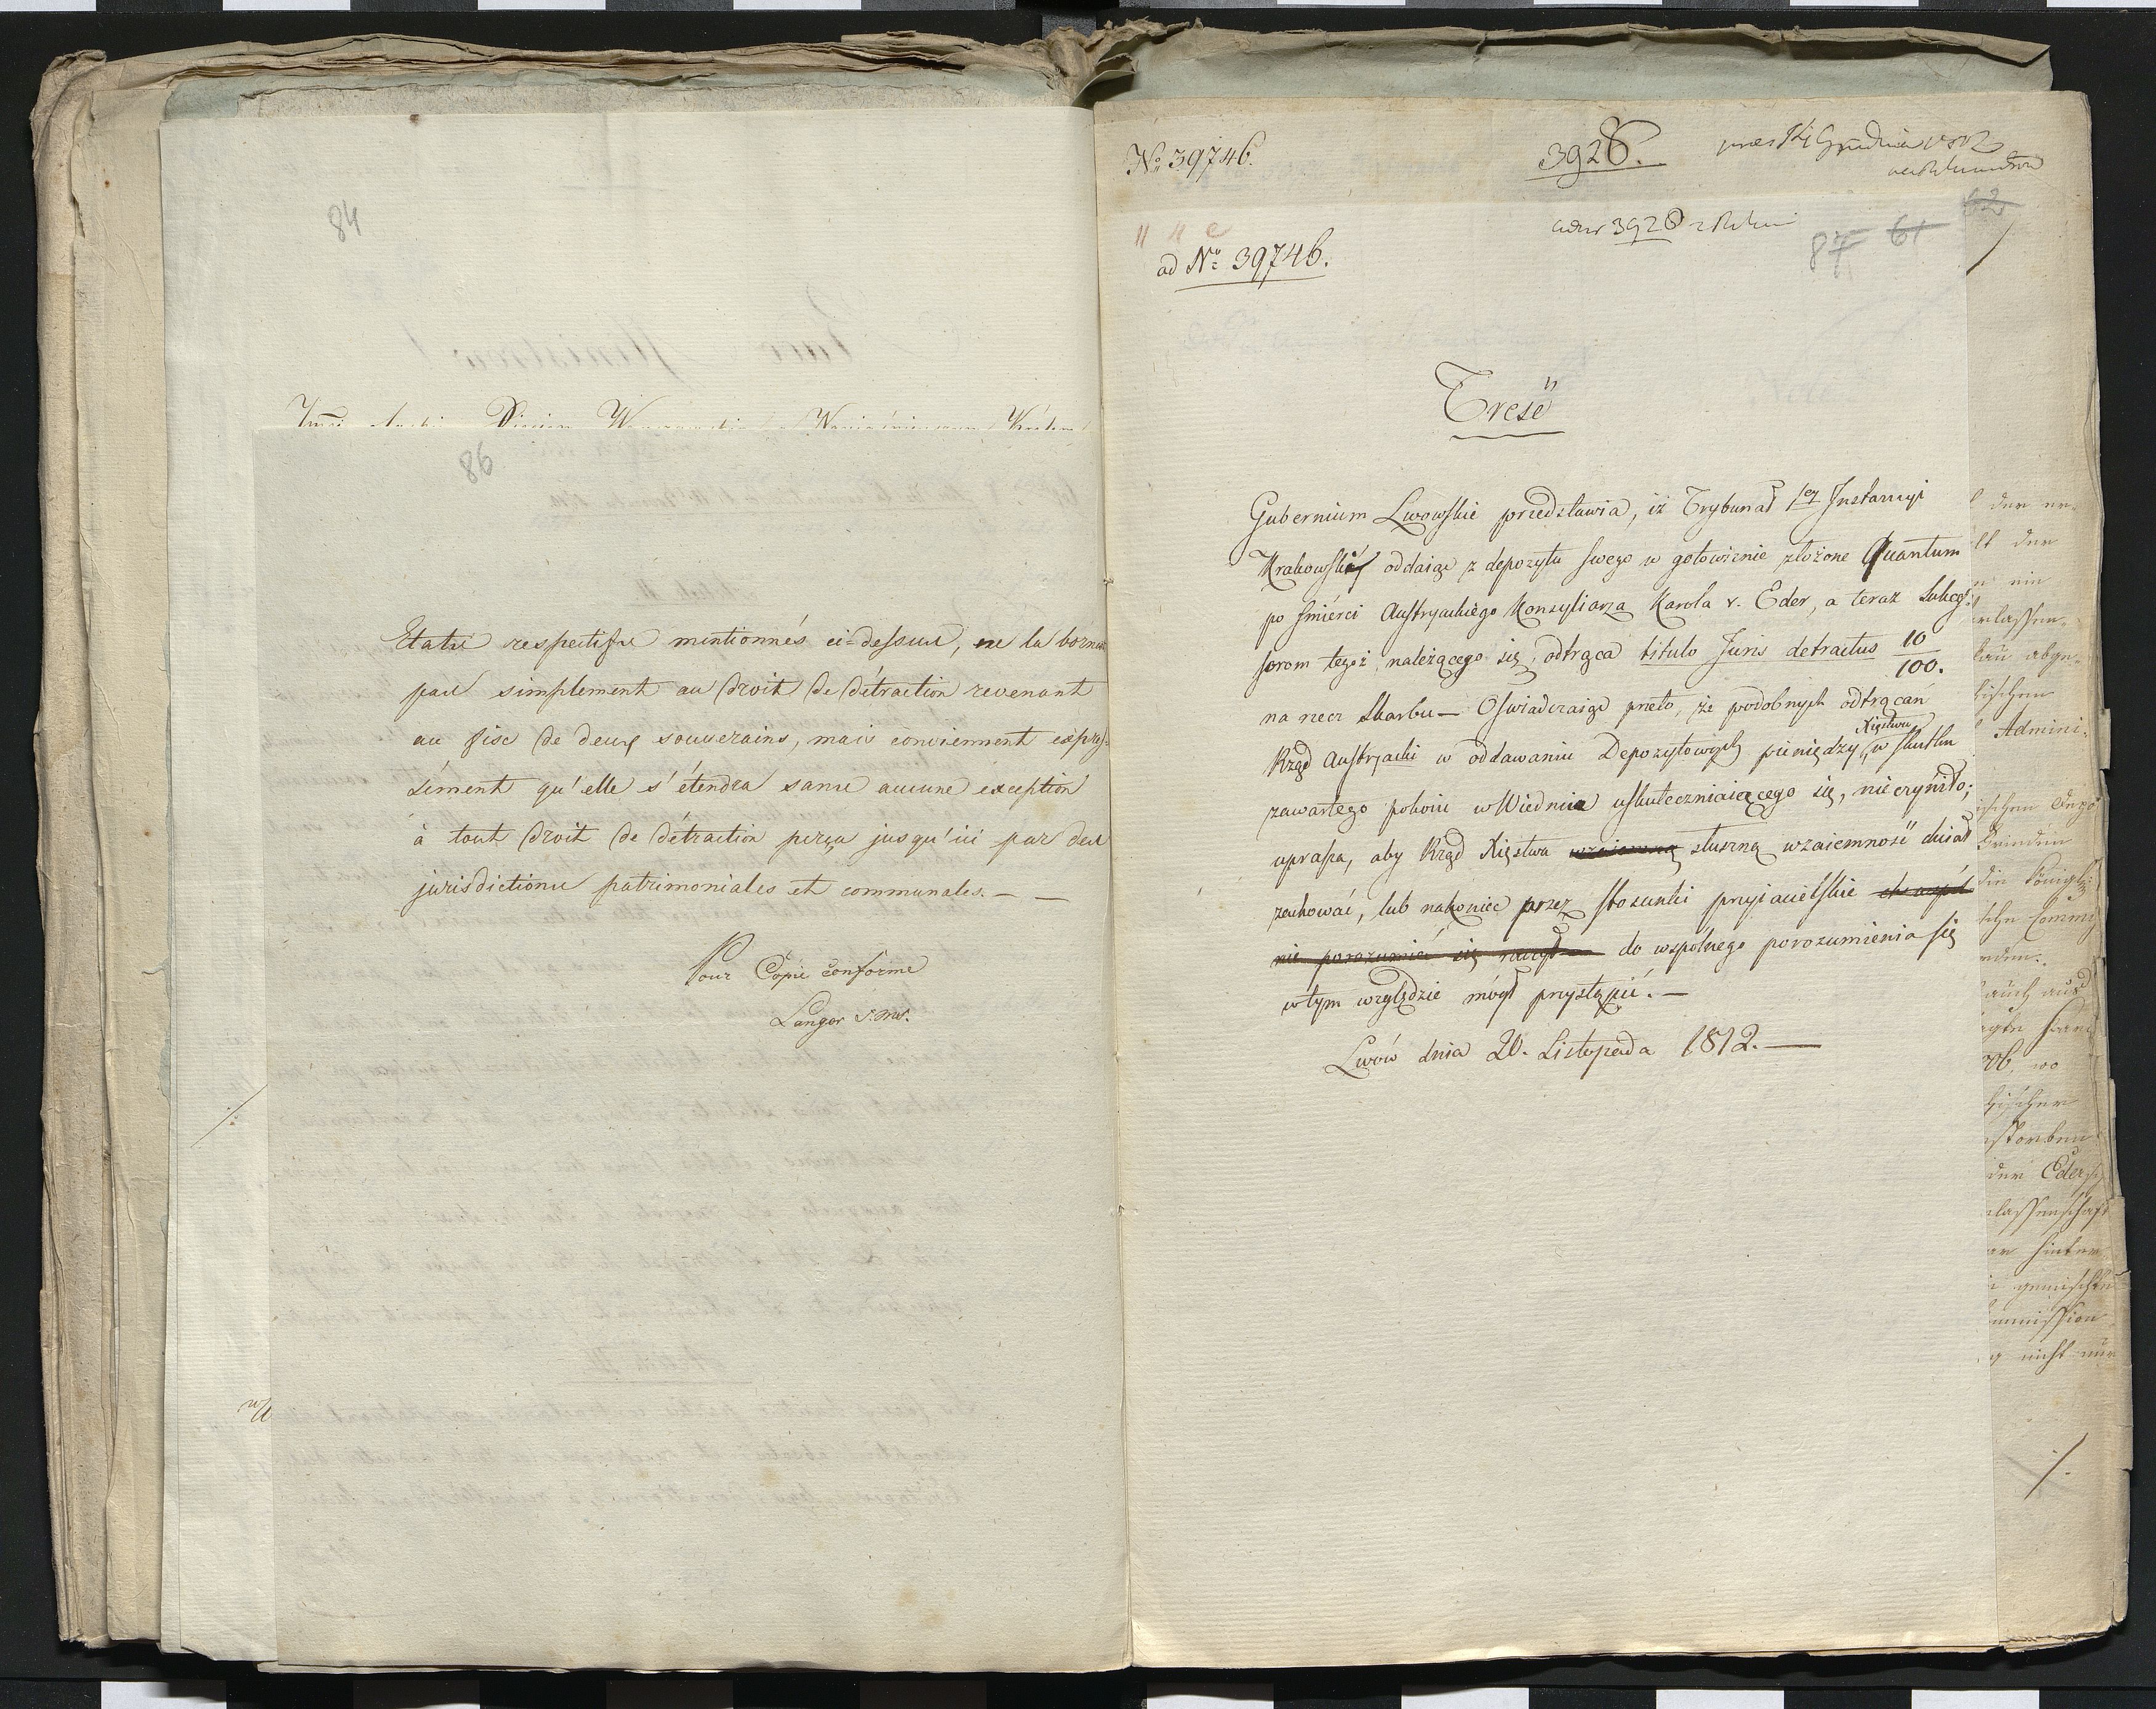 84
86
Etats respectifs mentionnés ci-dessus, ne la bornent
pas simplement au droit de détraction revenant
au fisc de deux souverains, mais conviennent expres-
sément qu'elle s'étendra sans aucune exception
à tout droit de détraction perçu jusqu'ici par des
jurisdictions patrimoniales et communales. —
Pour Copie conforme
Langer
No. 39746.
3928.
14 Grudnia
62
3928
87 61
ad No. 39746.
Treść
Gubernium Lwowskie przedstawia, iż Trybunał 1ey Instancyi
Krakowski oddaiąc z depozytu swego w gotowiznie złożone Quantum
po śmierci Austryackiego Konsyliarza Karola v. Eder, a teraz Sukces-
sorom tegoż należącego się, odtrąca titulo Juris detractus 10/100.
na rzecz Skarbu — Oświadczaiąc przeto, że podobnych odtrącań
Rząd Austryacki w oddawaniu Depozytowych pieniędzy Xięstwu, w skutku
zawartego pokoiu w Wiedniu uskuteczniaiącego się, nieczyniło;
uprasza, aby Rząd Xięstwa wzaiemną słuszną wzaiemność chciał
zachować, lub nakoniec przez stosunki przyiacielskie
nie porozumieć się mógł do wspólnego porozumienia się
w tym względzie mógł przystąpić. —
Lwów dnia 20. Listopada 1812. —
der
ein
Admini-
die Königl.
Commi
auch
wo
der Eder
nicht nur